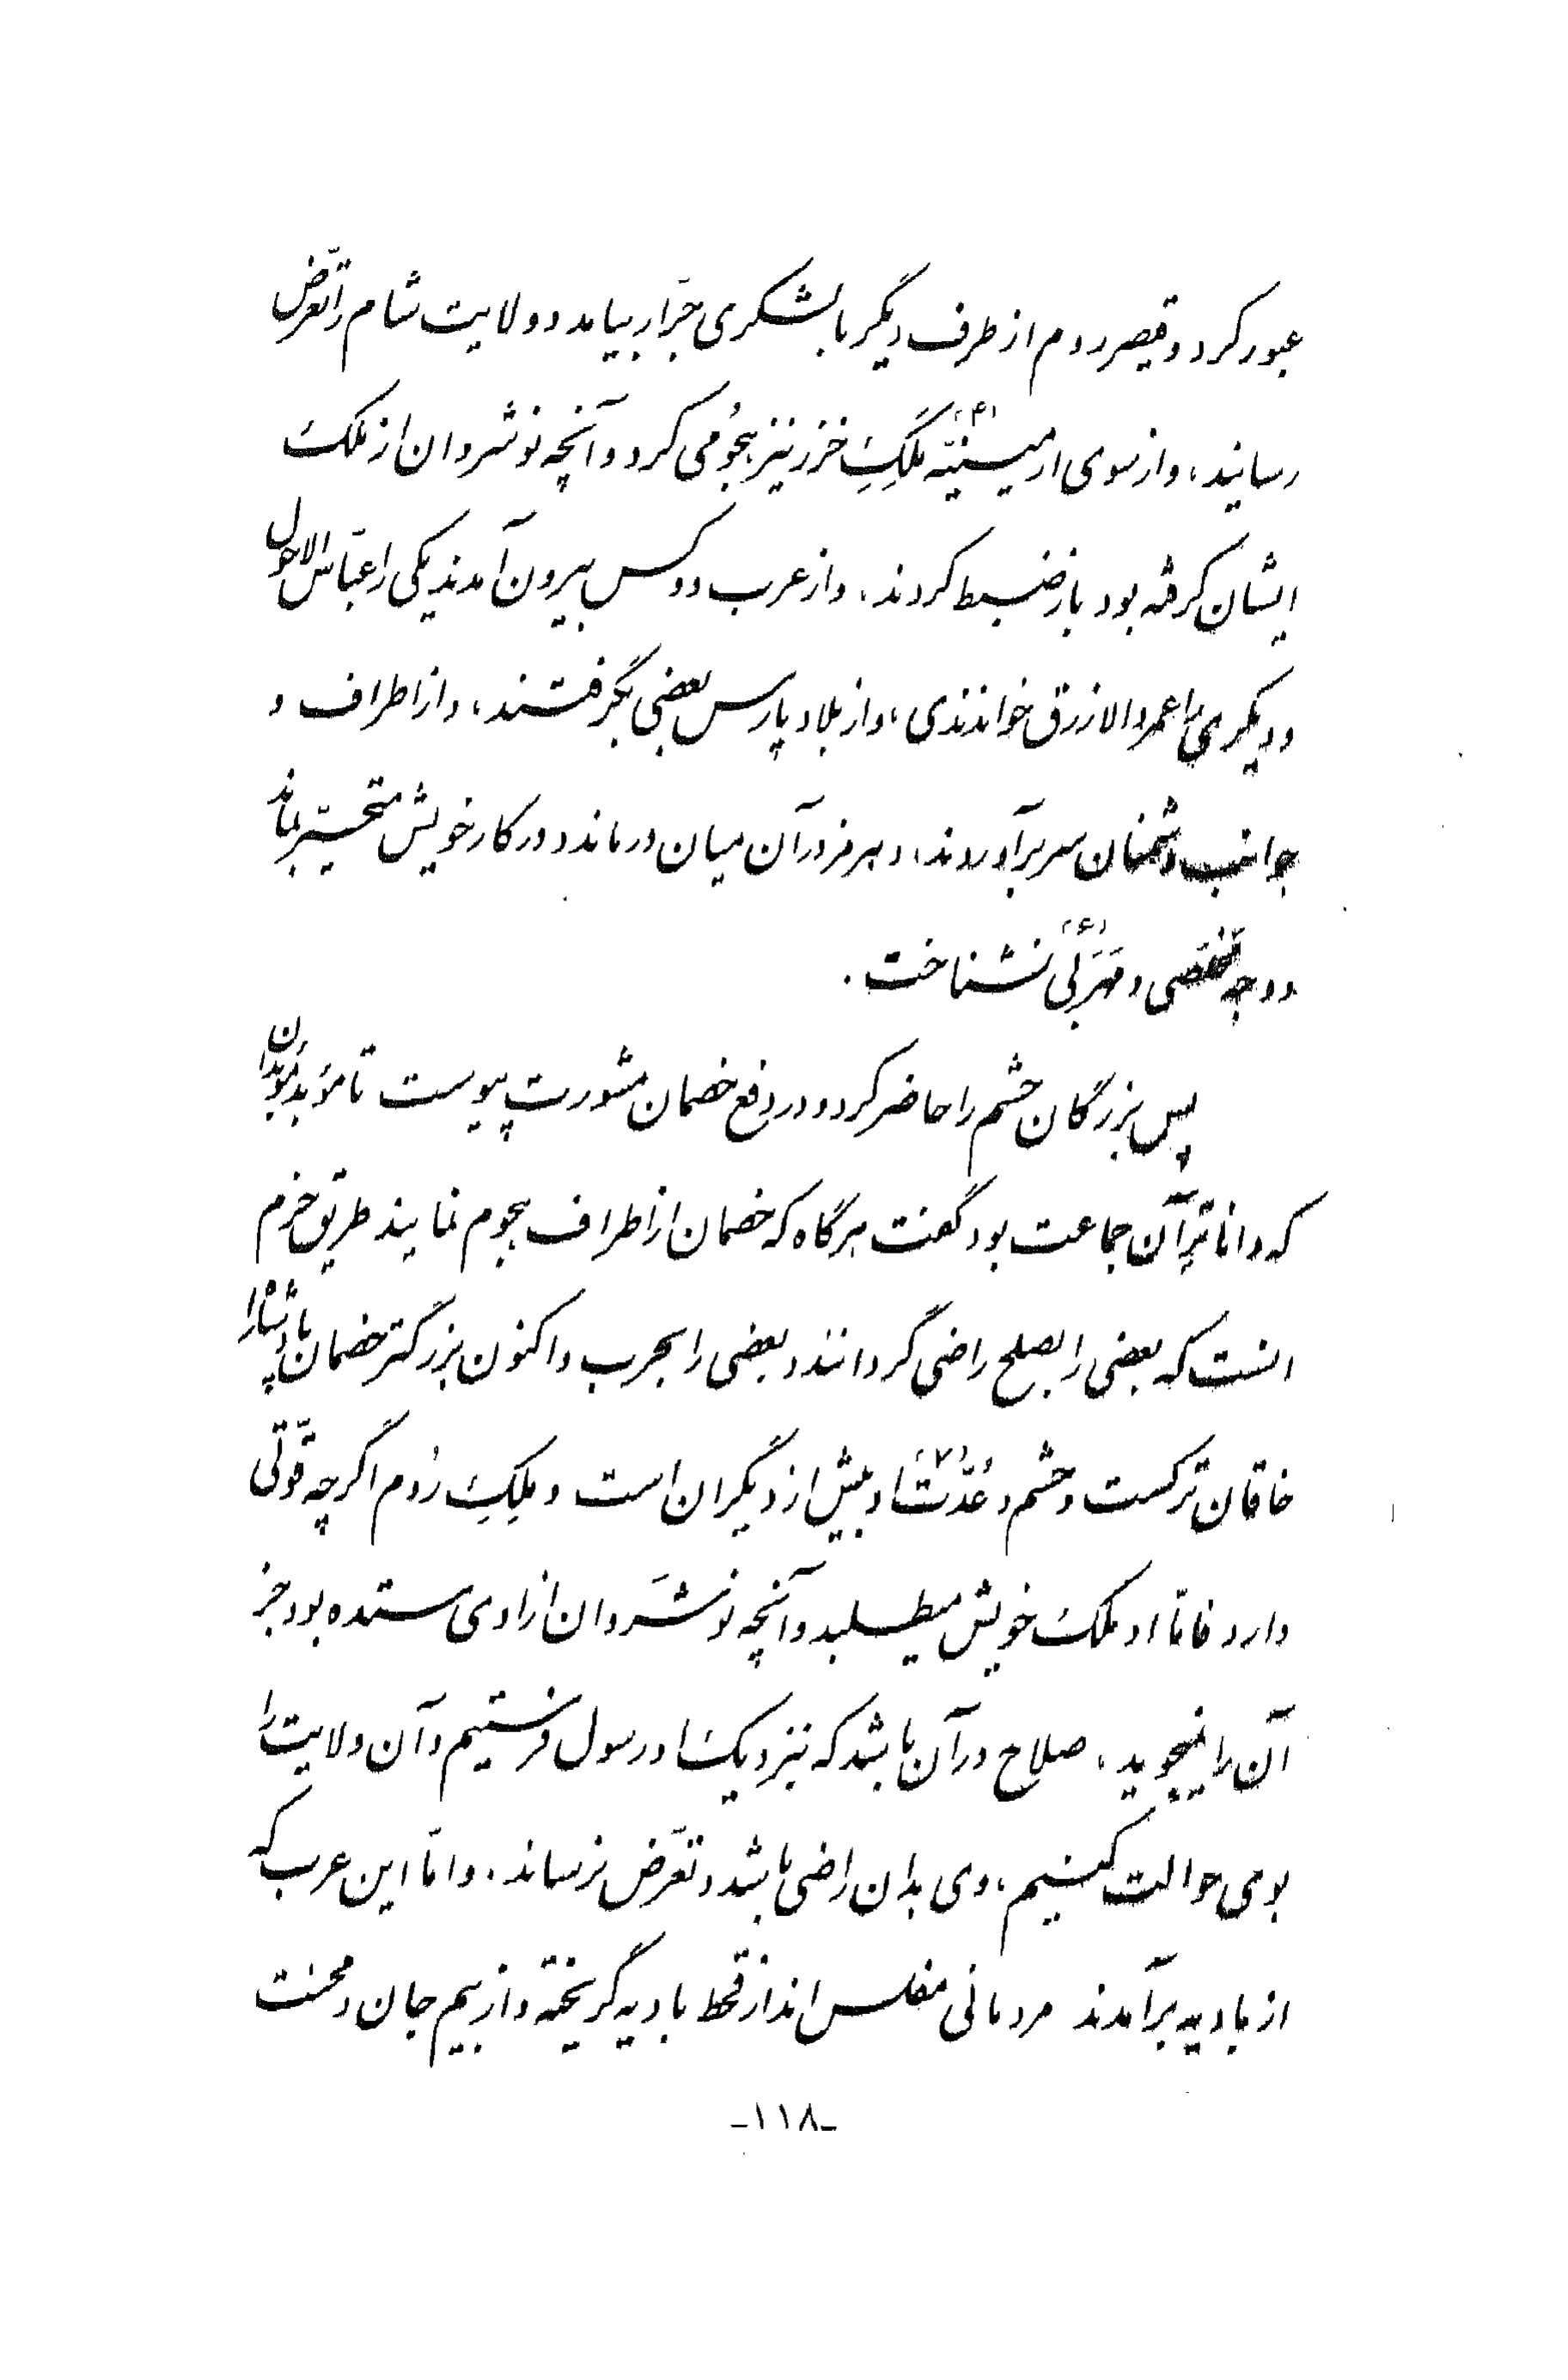 عبور کرد و قیصر روم از طرف دیگر با لشکری جرّار بیامد و ولایت شام را تعرّض
رسانید، و از سوی ارمینیّه ملِکِ خزر نیز هجومی کرد و آنچه نوشروان از ملک
ایشان گرفته بود باز ضبط کردند، و از عرب دو کس بیرون آمدند یکی را عبّاس الاحول
و دیگری را عمرو الازرق خواندندی، و از بلاد پارس بعضی بگرفتند، و از اطراف و
جوانب دشمنان سر برآوردند، و هرمز در آن میان درماند و در کار خویش متحیّر بماند
و وجه تخصّی و مَهرَبی نشناخت.
پس بزرگان حشم را حاضر کرد و در دفع خصمان مشورت پیوست تا موبد موبدان
که داناتر آن جماعت بود گفت هر گاه که خصمان از اطراف هجوم نمایند طریق حزم
انست که بعضی را بصلح راضی گردانند و بعضی را بحرب و اکنون بزرگتر خصمان پادشاه را
خاقان ترکست و حشم و عُدّت او بیش از دیگران است و ملِکِ رُوم اگر چه قوّتی
دارد فامّا او ملک خویش میطلبد و آنچه نوشَروان از او وی ستده بود جز
آن را نمیجوید، صلاح در آن باشد که بنزدیک او رسول فرستیم و آن ولایت را
بوی حوالت کنیم، وی بدان راضی باشد و تعرّض نرساند، و امّا این عرب که
از بادیه برآمدند مردمانی مفلس اند از قحط بادیه گریخته و از بیم جان و محنت
ـ۱۱۸ـ